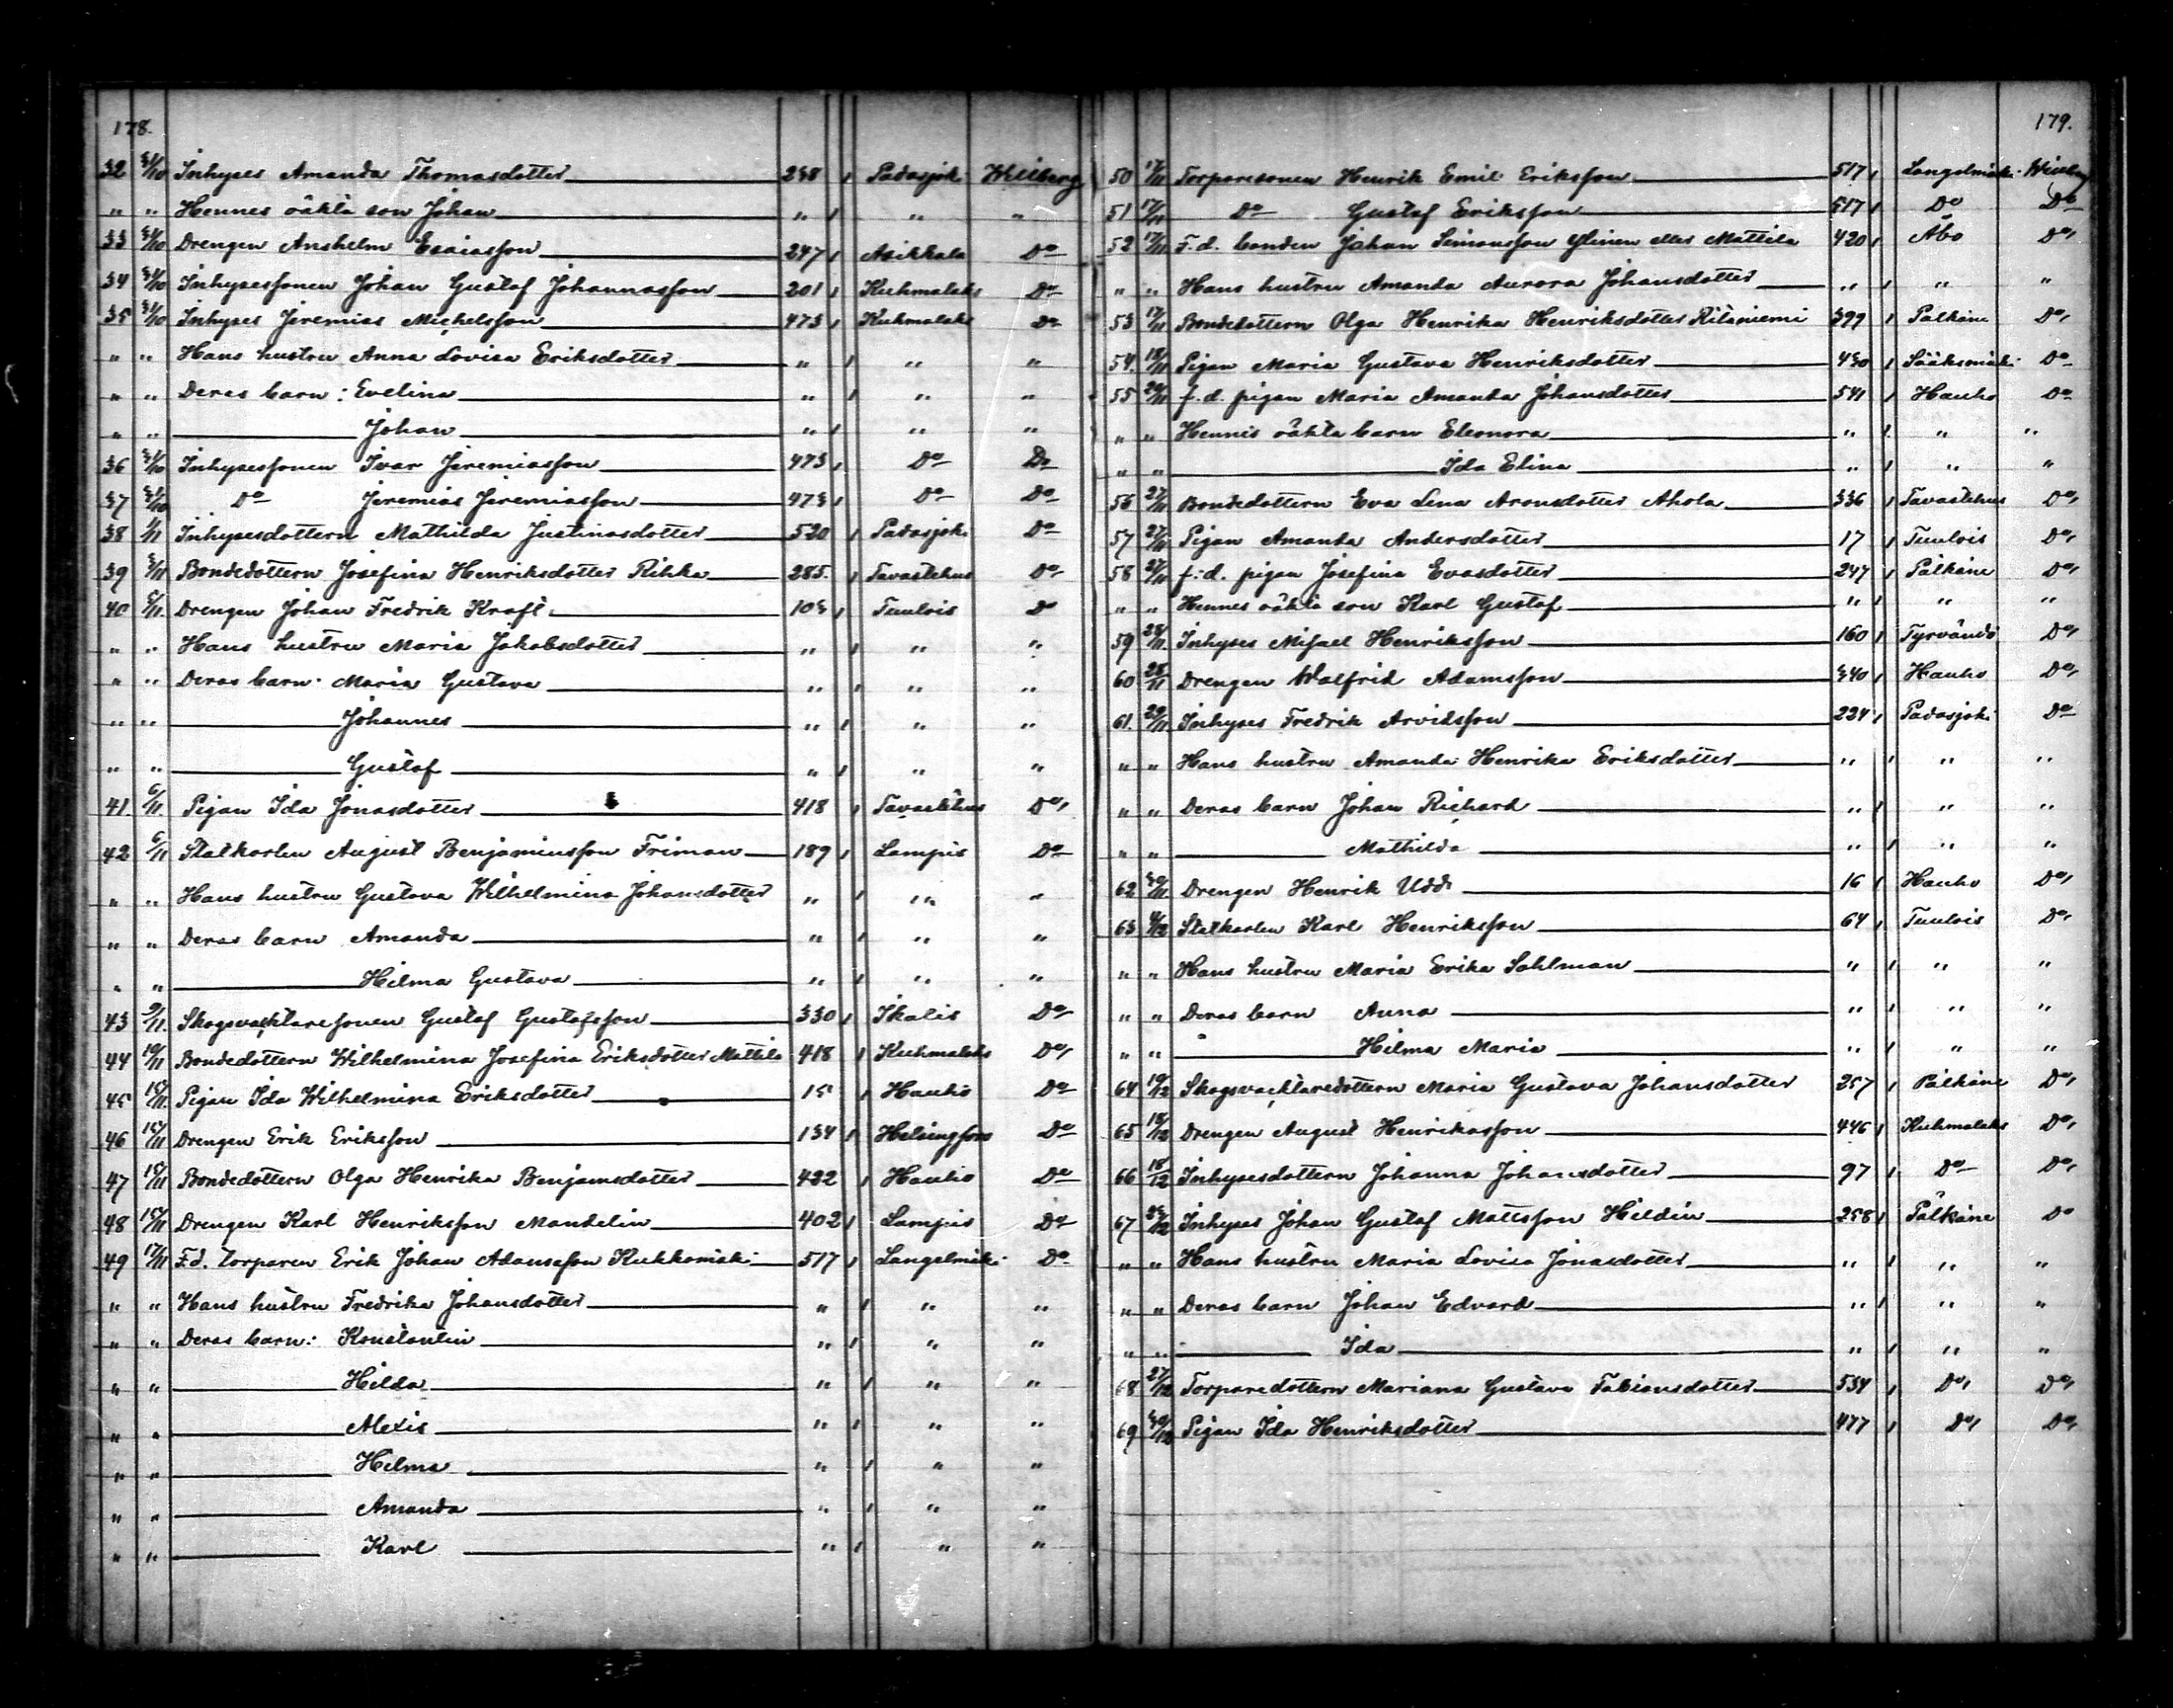 178.
32 31/10 Inhyses Amanda Thomasdotter 238 1 Padasjoki Wellberg
" " Hennes oäkta son Johan " 1 " "
33 31/10 Drengen Anshelm Esaiasson 247 1 Asikkala Do
34 31/10 Inhysessonen Johan Gustaf Johannasson 201 1 Kuhmalaks Do
35 31/10 Inhyses Jeremias Michelsson 473 1 Kuhmalaks Do
" " Hans hustru Anna Lovisa Eriksdotter " 1 " "
" " Deras barn: Evelina " 1 " "
" " Johan " 1 " "
36 31/10 Inhysessonen Ivar Jeremiasson 473 1 Do Do
37 31/10 Do Jeremias Jeremiasson 473 1 Do Do
38 1/11 Inhysesdottern Mathilda Justinasdotter 520 1 Padasjoki Do
39 3/11 Bondedottern Josefina Henriksdotter Rihka 285. 1 Tavastehus Do
40 5/11 Drengen Johan Fredrik Kraft 103 1 Tuulois Do
" " Hans hustru Maria Jakobsdotter " 1 " "
" " Deras barn: Maria Gustava " 1 " "
" " Johannes " 1 " "
" " Gustaf " 1 " "
41. 6/11 Pigan Ida Jonasdotter 418 1 Tavastehus Do
42 6/11 Statkarlen August Benjaminsson Friman 189 1 Lampis Do
" " Hans hustru Gustava Wilhelmina Johansdotter " 1 " "
" " Deras barn Amanda " 1 " "
" " Hilma Gustava " 1 " "
43 9/11 Skogsvacktaresonen Gustaf Gustafsson 330 1 Ikalis Do
44 10/11 Bondedottern Wilhelmina Josefina Eriksdotter Mattila 418 1 Kuhmalaks Do
45 15/11 Pigan Ida Wilhelmina Eriksdotter 15 1 Hauho Do
46 15/11 Drengen Erik Eriksson 134 1 Helsingfors Do
47 15/11 Bondedottern Olga Henrika Benjamsdotter 422 1 Hauho Do
48 15/11 Drengen Karl Henriksson Mandelin 402 1 Lampis Do
49 17/11 F.d. Torparen Erik Johan Adamsson Kukkomäki 517 1 Langelmäki Do
" " Hans hustru Fredrika Johansdotter " 1 " "
" " Deras barn: Konstantin " 1 " "
" " Hilda " 1 " "
" " Alexis " 1 " "
" " Hilma " 1 " "
" " Amanda " 1 " "
" " Karl " 1 " "
179.
50 17/11 Torparesonen Henrik Emil Eriksson 517 1 Langelmäki
51 17/11 Do Gustaf Eriksson 517 1 Do Do
52 17/11 F.d. bonden Johan Simonsson Ylinen eller Mattila 420 1 Åbo Do
" " Hans hustru Amanda Aurora Johansdotter " 1 " "
53 17/11 Bondedottern Olga Henrika Henriksdotter Ritaniemi 399 1 Pälkäne Do
54. 18/11 Pigan Maria Gustava Henriksdotter 430 1 Sääksmäki Do
55 20/11 f.d. pigan Maria Amanda Johansdotter 541 1 Hauho Do
" " Hennes oäkta barn Eleonora " 1 " "
" " Ida Elina " 1 " "
56 27/11 Bondedottern Eva Lena Aronsdotter Ahola 336 1 Tavastehus Do
57 27/11 Pigan Amanda Andersdotter 17 1 Tuulois Do
58 27/11 f.d. pigan Josefina Evasdotter 247 1 Pälkäne Do
" " Hennes oäkta son Karl Gustaf " 1 " "
59 28/11 Inhyses Misael Henriksson 160 1 Tyrvändö Do
60 28/11 Drengen Walfrid Adamsson 340 1 Hauho Do
61. 29/11 Inhyses Fredrik Arvidsson 224 1 Padasjoki Do
" " Hans hustru Amanda Henrika Eriksdotter " 1 " "
" " Deras barn Johan Richard " 1 " "
" " Mathilda " 1 " "
62 30/11 Drengen Henrik Udd 16 1 Hauho Do
63 4/12 Statkarlen Karl Henriksson 64 1 Tuulois Do
" " Hans hustru Maria Erika Sahlman " 1 " "
" " Deras barn Anna " 1 " "
" " Hilma Maria " 1 " "
64 10/12 Skogsvacktaredottern Maria Gustava Johansdotter 257 1 Pälkäne Do
65 18/12 Drengen August Henrikasson 446 1 Kuhmalaks Do
66 18/12 Inhysesdottern Johanna Johansdotter 97 1 Do Do
67 /12 Inhyses Johan Gustaf Mattsson Heldin 258 1 Pälkäne Do
" " Hans hustru Maria Lovisa Jonasdotter " 1 " "
" " Deras barn Johan Edvard " 1 " "
" " Ida " 1 " "
68 27/12 Torparedottern Mariana Gustava Fabiansdotter 534 1 Do Do
69 30/12 Pigan Ida Henriksdotter 477 1 Do Do